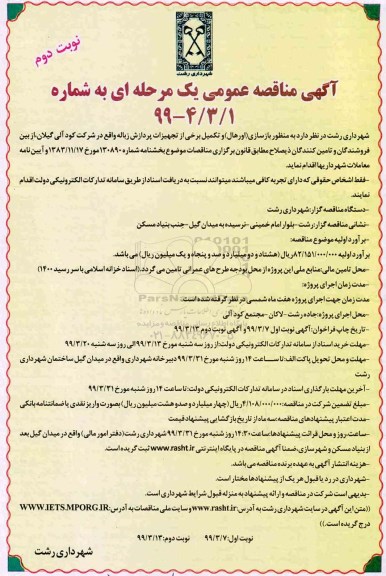 نوبت دوم
شهرداری رشت
آگهی مناقصه عمومی یک مرحله ای به شماره
۹۹-۴/۳/۱
شهرداری رشت در نظر دارد به منظور بازسازی (اورهال) و تکمیل برخی از تجهیزات پردازش زباله واقع در شرکت کود آلی گیلان، از بین
فروشندگان و تامین کنندگان ذیصلاح مطابق قانون برگزاری مناقصات موضوع بخشنامه شماره ۱۳۰۸۹۰ مورخ ۱۳۸۳/۱۱/۱۷ و آیین نامه
معاملات شهرداریها اقدام نماید.
-فقط اشخاص حقوقی که دارای تجربه کافی میباشند میتوانند نسبت به دریافت اسناد از طریق سامانه تدارکات الکترونیکی دولت اقدام
نمایند.
-دستگاه مناقصه گزار: شهرداری رشت
-نشانی مناقصه گزار: رشت-بلوار امام خمینی-نرسیده به میدان گیل-جنب بنیاد مسکن
-برآورد اولیه موضوع مناقصه:
برآورد اولیه ۸۲/۱۵۱/۰۰۰/۰۰۰ ریال (هشتاد و دو میلیارد و صد و پنجاه و یک میلیون ریال) می باشد.
-محل تامین مالی: منابع ملی این پروژه از محل بودجه طرح های عمرانی تامین می گردد. (اسناد خزانه اسلامی با سر رسید ۱۴۰۰)
-مدت زمان اجرای پروژه:
مدت زمان جهت اجرای پروژه هفت ماه شمسی در نظر گرفته شده است.
-محل اجرای پروژه: جاده رشت-لاکان-مجتمع کود آلی
-تاریخ چاپ فراخوان: آگهی نوبت اول ۹۹/۳/۷ و آگهی نوبت دوم ۹۹/۳/۱۳
-مهلت خرید اسناد از سامانه تدارکات الکترونیکی دولت: از روز سه شنبه مورخ ۹۹/۳/۱۳ الی روز سه شنبه ۹۹/۳/۲۰
-مهلت و محل تحویل پاکت الف: تا ساعت ۱۴ روز شنبه مورخ ۹۹/۳/۳۱ دبیرخانه شهرداری واقع در میدان گیل ساختمان شهرداری
رشت
-آخرین مهلت بارگذاری اسناد در سامانه تدارکات الکترونیکی دولت: تا ساعت ۱۴ روز شنبه مورخ ۹۹/۳/۳۱
-مبلغ تضمین شرکت در مناقصه: ۴/۱۰۸/۰۰۰/۰۰۰ ریال (چهار میلیارد و صد و هشت میلیون ریال) بصورت واریز نقدی یا ضمانتنامه بانکی
-مدت اعتبار پیشنهادهای مناقصه: سه ماه از تاریخ بازگشایی پیشنهاد قیمت
-ساعت، روز و محل قرائت پیشنهادها: ساعت ۱۴:۳۰ روز شنبه مورخ ۹۹/۳/۳۱ شهرداری رشت (دفتر امور مالی) واقع در میدان گیل بعد
از بنیاد مسکن و شهرسازی، ضمنا آگهی مناقصه در پایگاه اینترنتی www.rasht.ir ثبت گردیده است.
-هزینه انتشار آگهی به عهده برنده مناقصه می باشد.
-شهرداری در رد یا قبول هر یک از پیشنهادها مختار است.
-بدیهی است شرکت در مناقصه و ارائه پیشنهاد به منزله قبول شرایط شهرداری است.
((متن این آگهی در سایت شهرداری رشت به آدرس: www.rasht.ir و سایت ملی مناقصات به آدرس: WWW.IETS.MPORG.IR
درج گردیده است.))
نوبت اول: ۹۹/۳/۷ نوبت دوم: ۹۹/۳/۱۳
شهرداری رشت